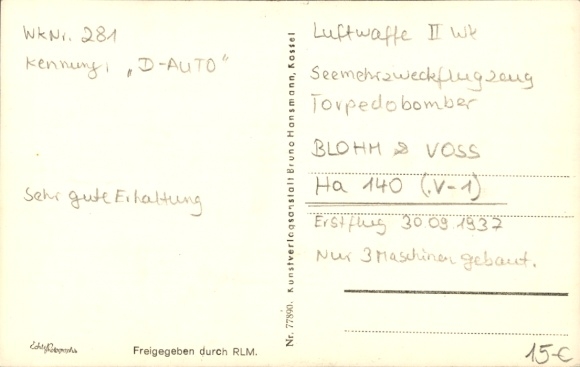 WkNr. 281
Kennung: „D-AUTO“
Sehr gute Erhaltung
Freigegeben durch RLM.
Nr. 77890. Kunstverlagsanstalt Bruno Hansmann, Kassel
Luftwaffe II Wk
Seemehrzweckflugzeug
Torpedobomber
BLOHM & VOSS
Ha 140 (.V-1)
Erstflug 30.09.1937
Nur 3 Maschinen gebaut.
15-€